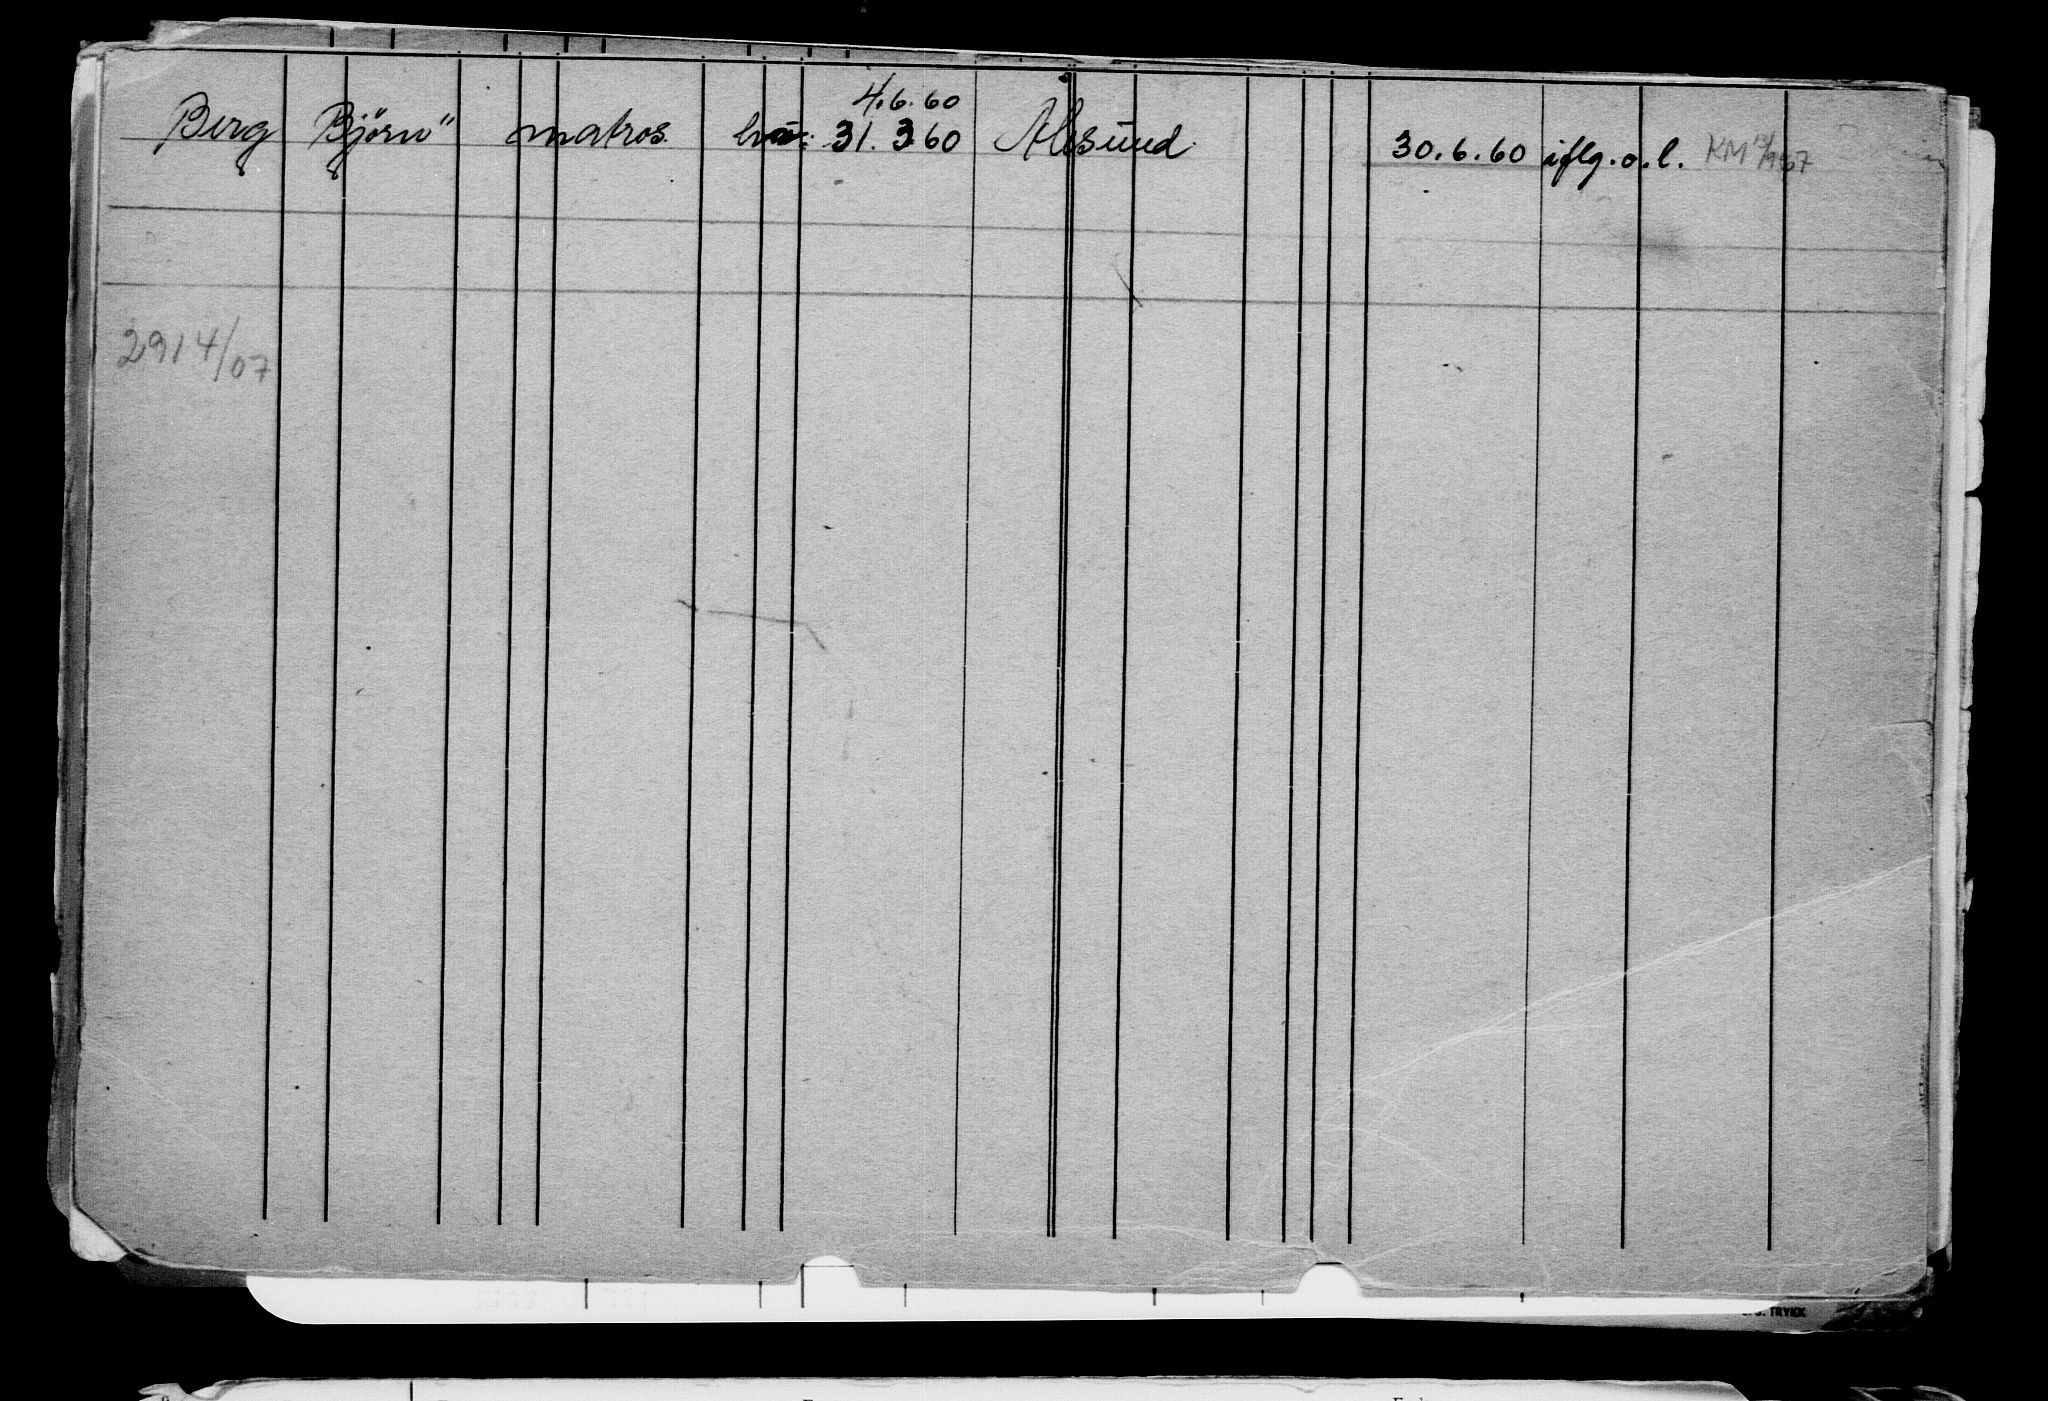 4.6.60
Berg Björn" matros 31.3.60 Ålesund 30.6.60 iflg.o.l. KM
2914/07
TRYKK